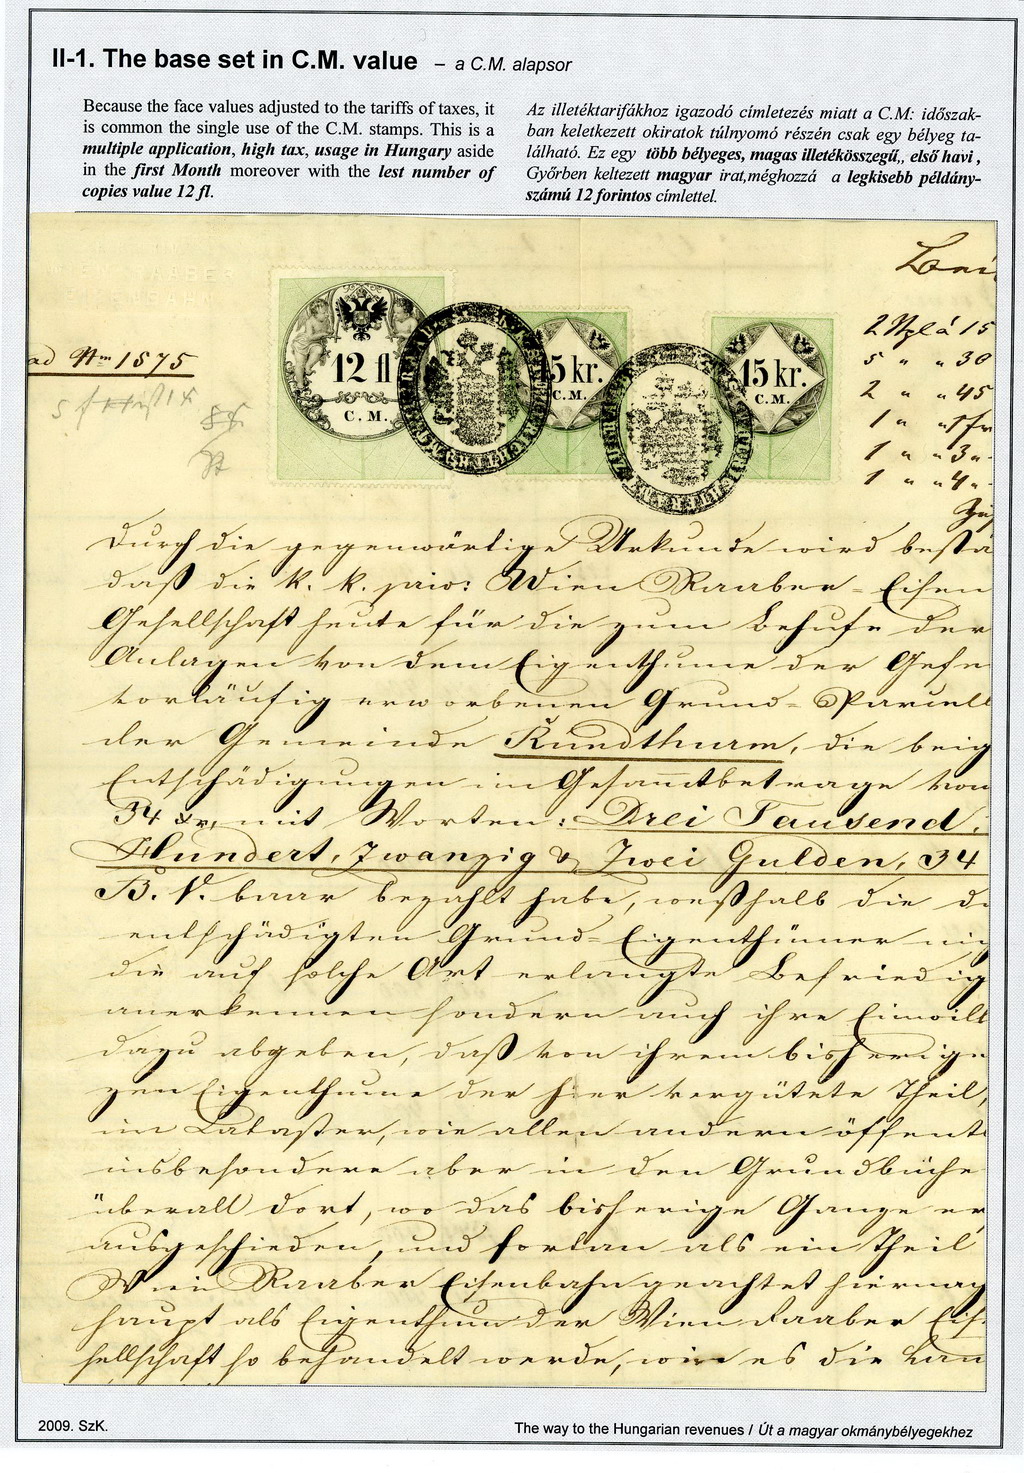 II-1. The base set in C.M. value – a C.M. alapsor
Because the face values adjusted to the tariffs of taxes, it
is common the single use of the C.M. stamps. This is a
multiple application, high tax, usage in Hungary aside
in the first Month moreover with the lest number of
copies value 12 fl.
Az illetéktarifákhoz igazodó címletezés miatt a C.M: időszak-
ban keletkezett okiratok túlnyomó részén csak egy bélyeg ta-
lálható. Ez egy több bélyeges, magas illetékösszegű,, első havi,
Győrben keltezett magyar irat,méghozzá a legkisebb példány-
számú 12 forintos címlettel.
ad Nm 1575
12 fl
C. M.
15 kr.
C. M.
15 kr.
C. M.
5 " " 30
2 " " 45
1 " "
1 " " 3 "
1 " " 4 "
Durch die gegenwärtige Urkunde wird bestä
daß die k. k. priv: Wien Raaber-Eisen
Gesellschaft heute für die zum Behufe der
Anlagen von dem Eigenthume der Geme
vorläufig erworbenen Grund-Parcell
der Gemeinde Rundthurm, die beig
Entschädigungen im Gesammtbetrage von
34 xr, mit Worten: Drei Tausend
Hundert, Zwanzig & Zwei Gulden, 34
B. V. baar bezahlt habe, weßhalb die d
entschädigten Grund-Eigenthümer nic
die auf solche Art erlangte Befriedig
anerkennen sondern auch ihre Einwill
dazu abgeben, daß von ihrem bisherige
zen Eigenthume der hier vergütete Theil,
im Kataster, wie allen andern öffentl
insbesondere aber in den Grundbüche
überall dort, wo das bisherige Ganze er
ausgeschieden, und fortan als ein Theil
Wien Raaber Eisenbahn geachtet hiernach
haupt als Eigenthum der Wien Raaber Eis
sellschaft so behandelt werde, wie es die Lan
2009. SzK.
The way to the Hungarian revenues / Út a magyar okmánybélyegekhez